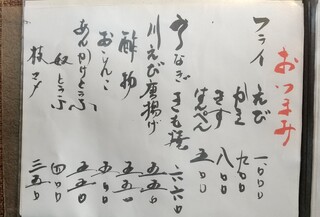 おつまみ
フライ えび 一、〇〇〇
かき 九〇〇
きす 八〇〇
はんぺん 五〇〇
うなぎきも焼 六六〇
川えび唐揚げ 五五〇
酢物 五五〇
おしんこ 五〇〇
あんかけとうふ 五五〇
奴とうふ 四〇〇
枝マメ 三五〇